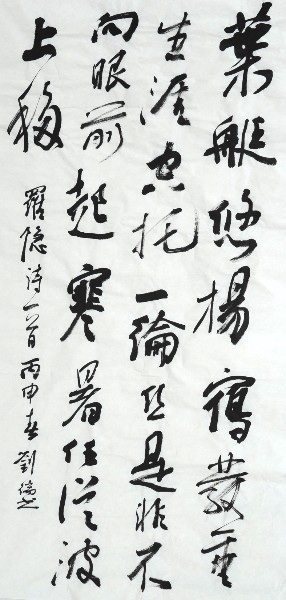 葉艇悠揚鶴髮垂
生涯空托一綸丝是非不
向眼前起寒暑任從波
上移
羅隐诗一首丙申春劉